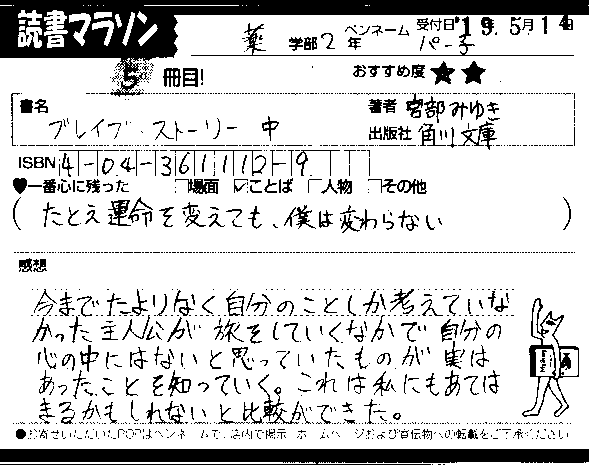 読書マラソン
薬 学部 2 年 ペンネーム パー子 受付日 '19. 5月 14日
5 冊目! おすすめ度 ★★
書名 ブレイブ・ストーリー 中
著者 宮部みゆき
出版社 角川文庫
ISBN 4-04-361112-9
♥一番心に残った □場面 ☑ことば □人物 □その他
(たとえ運命を変えても、僕は変わらない)
感想
今までたよりなく自分のことしか考えていな
かった主人公が旅をしていくなかで自分の
心の中にはないと思っていたものが実は
あったことを知っていく。これは私にもあては
まるかもしれないと比較ができた。
●お寄せいただいたPOPはペンネームで、店内で掲示 ホームページおよび宣伝物への転載をご了承ください